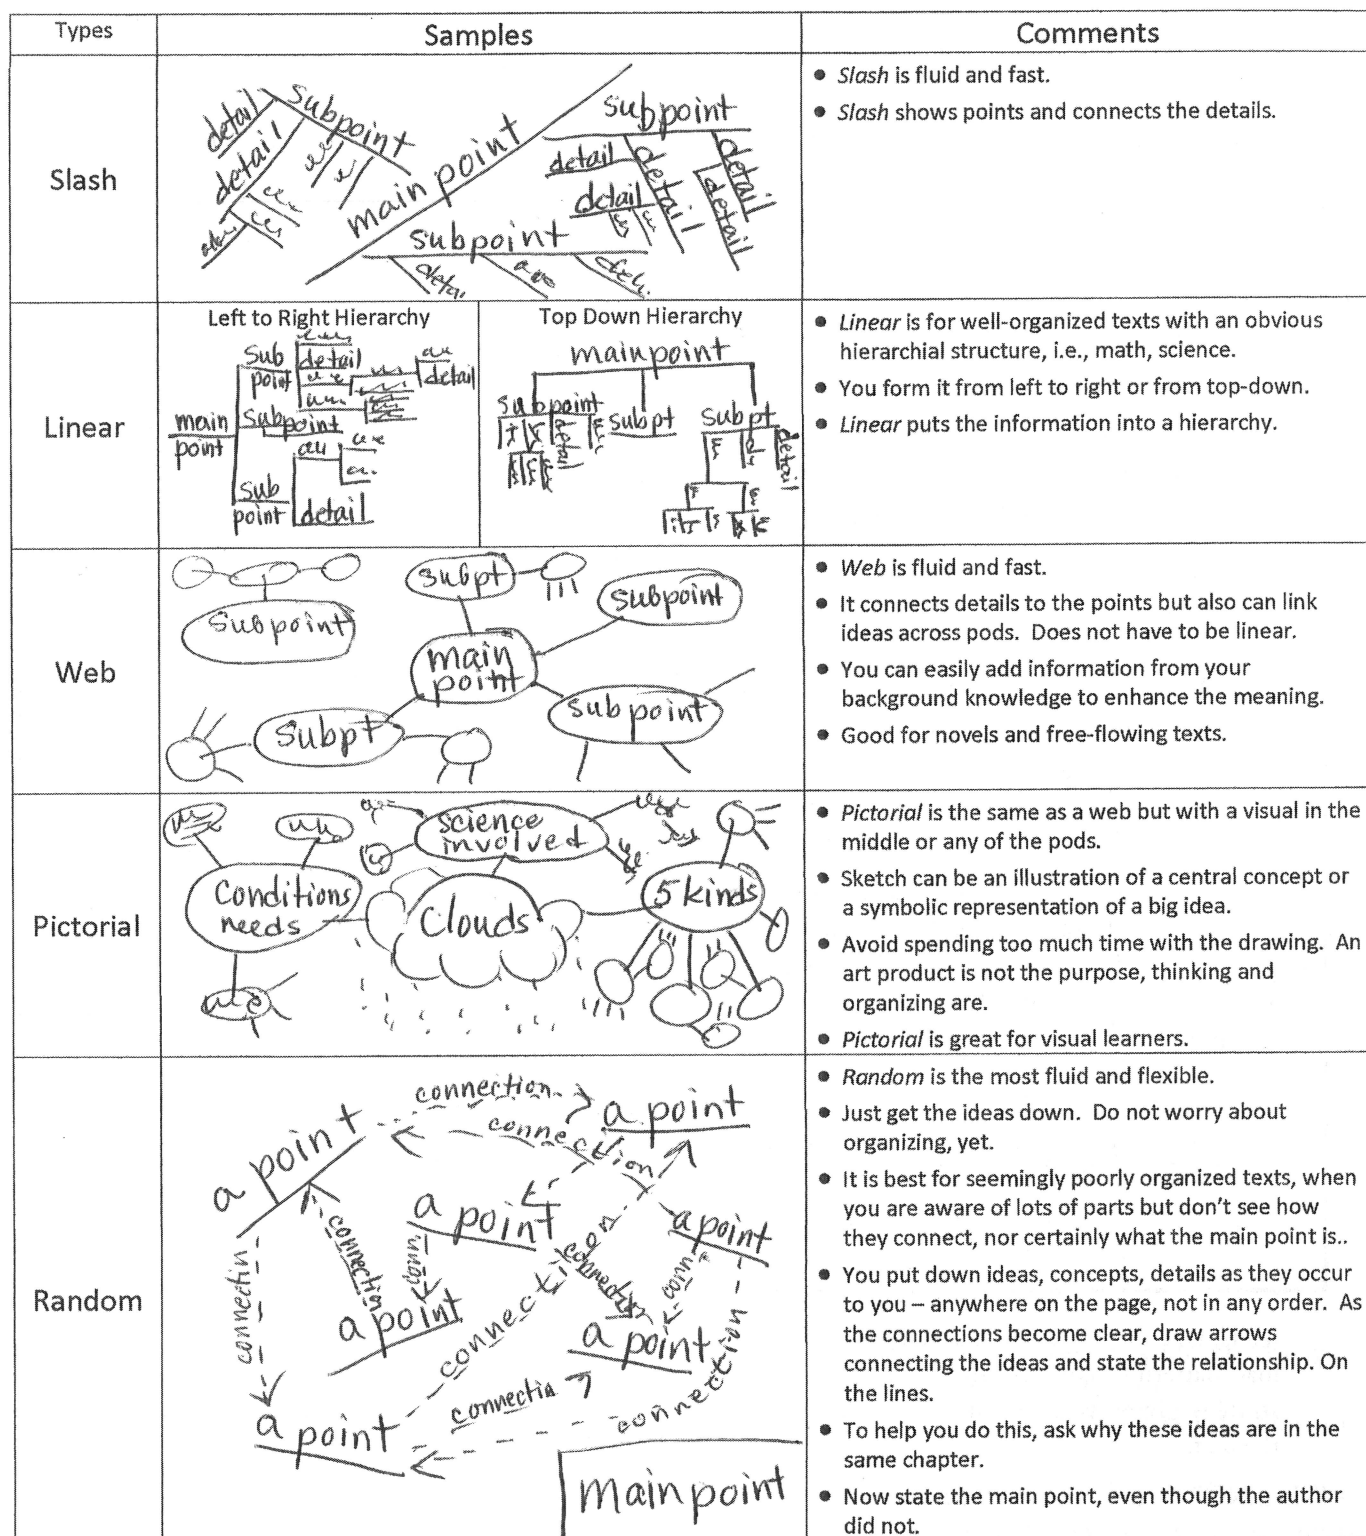 Types
Samples
Comments
Slash
detail
subpoint
detail
main point
subpoint
detail
detail
detail
detail
detail
subpoint
detai
• Slash is fluid and fast.
• Slash shows points and connects the details.
Linear
Left to Right Hierarchy
main
point
sub
point
detail
detail
subpoint
sub
point
detail
Top Down Hierarchy
main point
subpoint
detail
subpt
subpt
detail
• Linear is for well-organized texts with an obvious
hierarchial structure, i.e., math, science.
• You form it from left to right or from top-down.
• Linear puts the information into a hierarchy.
Web
subpt
subpoint
subpoint
main
point
subpoint
subpt
• Web is fluid and fast.
• It connects details to the points but also can link
ideas across pods. Does not have to be linear.
• You can easily add information from your
background knowledge to enhance the meaning.
• Good for novels and free-flowing texts.
Pictorial
science
involved
conditions
needs
Clouds
5 kinds
• Pictorial is the same as a web but with a visual in the
middle or any of the pods.
• Sketch can be an illustration of a central concept or
a symbolic representation of a big idea.
• Avoid spending too much time with the drawing. An
art product is not the purpose, thinking and
organizing are.
• Pictorial is great for visual learners.
Random
connection
a point
a point
connection
a point
a point
connection
connectin
conn
connection
connection
conn
a point
a point
connection
connectin
a point
main point
• Random is the most fluid and flexible.
• Just get the ideas down. Do not worry about
organizing, yet.
• It is best for seemingly poorly organized texts, when
you are aware of lots of parts but don't see how
they connect, nor certainly what the main point is..
• You put down ideas, concepts, details as they occur
to you – anywhere on the page, not in any order. As
the connections become clear, draw arrows
connecting the ideas and state the relationship. On
the lines.
• To help you do this, ask why these ideas are in the
same chapter.
• Now state the main point, even though the author
did not.